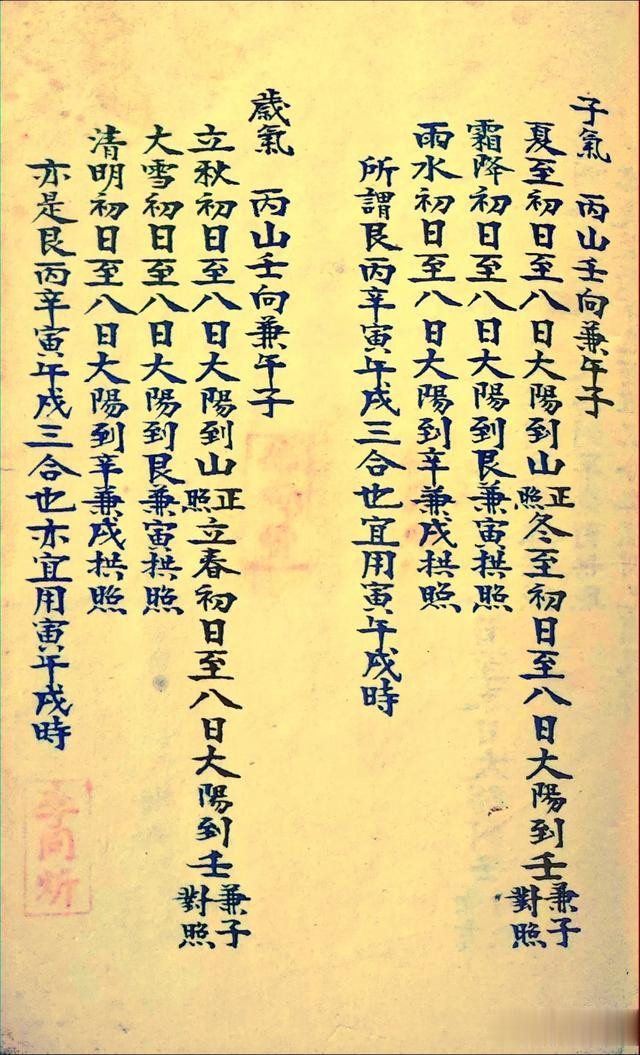 子氣　丙山壬向兼午子
夏至初日至八日大陽到山正照冬至初日至八日大陽到壬兼子對照
霜降初日至八日大陽到艮兼寅拱照
雨水初日至八日大陽到辛兼戌拱照
所謂艮丙辛寅午戌三合也宜用寅午戌時
歲氣　丙山壬向兼午子
立秋初日至八日大陽到山正照立春初日至八日大陽到壬兼子對照
大雪初日至八日大陽到艮兼寅拱照
清明初日至八日大陽到辛兼戌拱照
亦是艮丙辛寅午戌三合也亦宜用寅午戌時